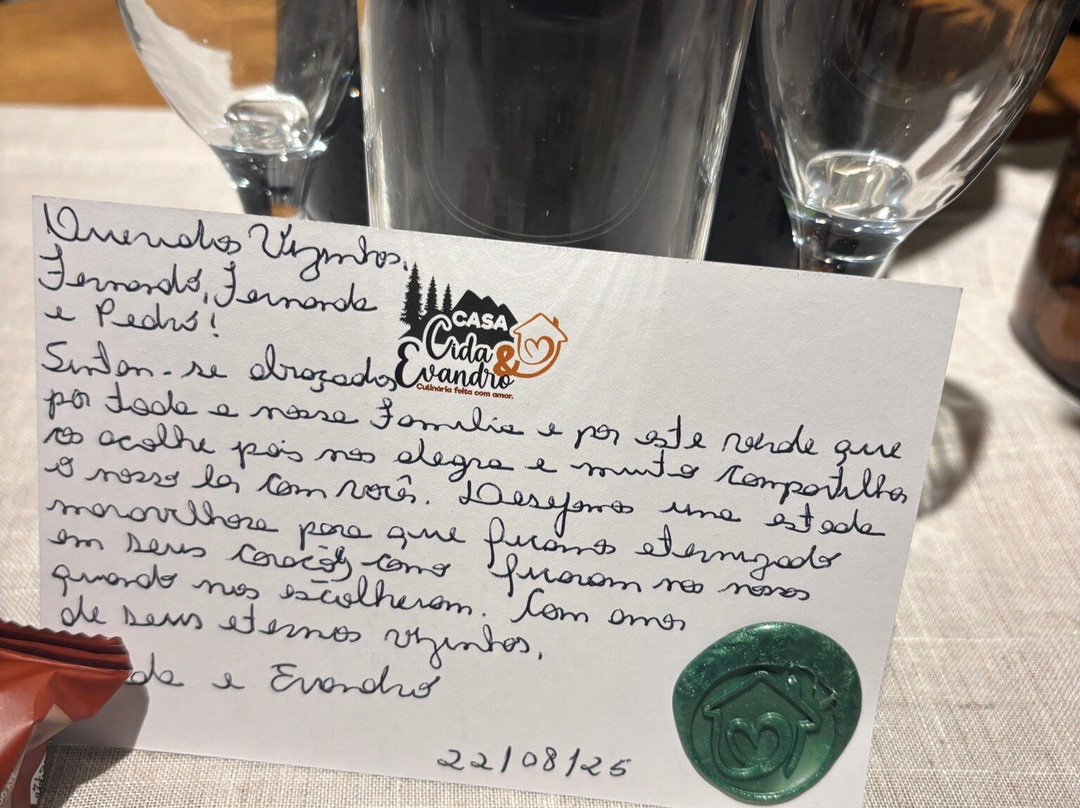 Queridos Vizinhos,
Fernando, Fernanda
e Pedro!
CASA
Cida
&
Evandro
Culinária feita com amor.
Sintam-se abraçados
por toda a nossa família e por este verde que
nos acolhe pois nos alegra e muito compartilhar
o nosso lar com vocês. Desejamos uma estada
maravilhosa para que ficamos eternizado
em seus corações como ficaram nos nossos
quando nos escolheram. Com amor
de seus eternos vizinhos.
da e Evandro
22/08/25